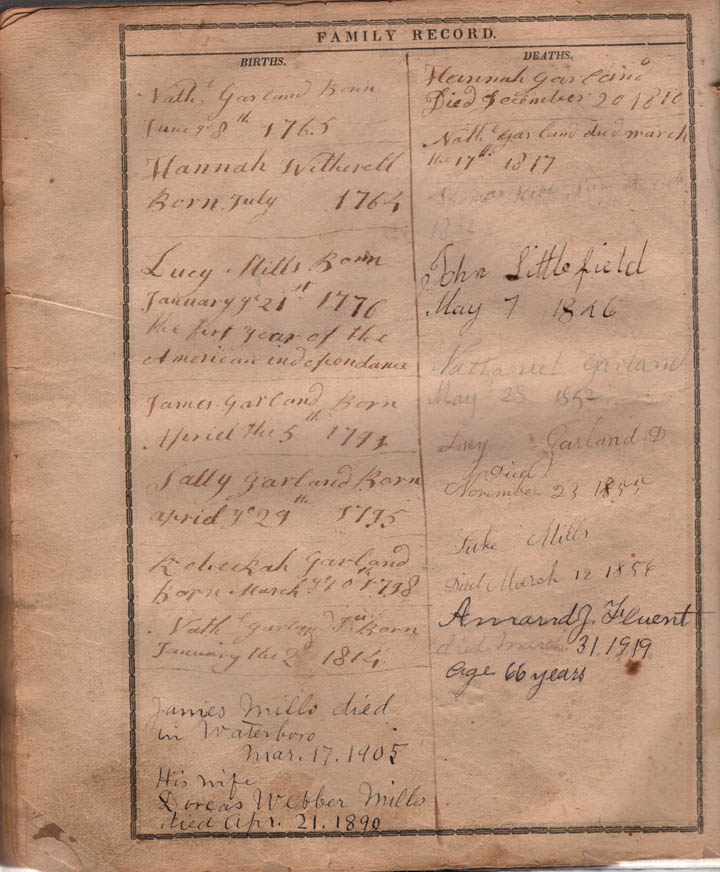 FAMILY RECORD.
BIRTHS.
Nath. Garland Born
June ye 8th 1765
Hannah Witherell
Born July 1764
Lucy Mills Born
January ye 21st 1776
the first year of the
American independance
James Garland Born
Apried the 5th 1791
Sally Garland Born
apried ye 29th 1795
Rebeckah Garland
Born March ye 1798
Nath Garland Jun Born
January the 2 1814
James Mills died
in Waterboro
Mar. 17. 1905
His wife
Dorcas Webber Mills
died Apr. 21. 1890
DEATHS.
Hannah Garland
Died December 20 1810
Nath Garland died march
the 17th 1817
John Littlefield
May 7 1846
Nathaniel Garland
May 28 1852
Lucy Garland D
Died
November 23 1855
Luke Mills
Died March 12 1856
Armand J. Fluent
died March 31, 1919
age 66 years